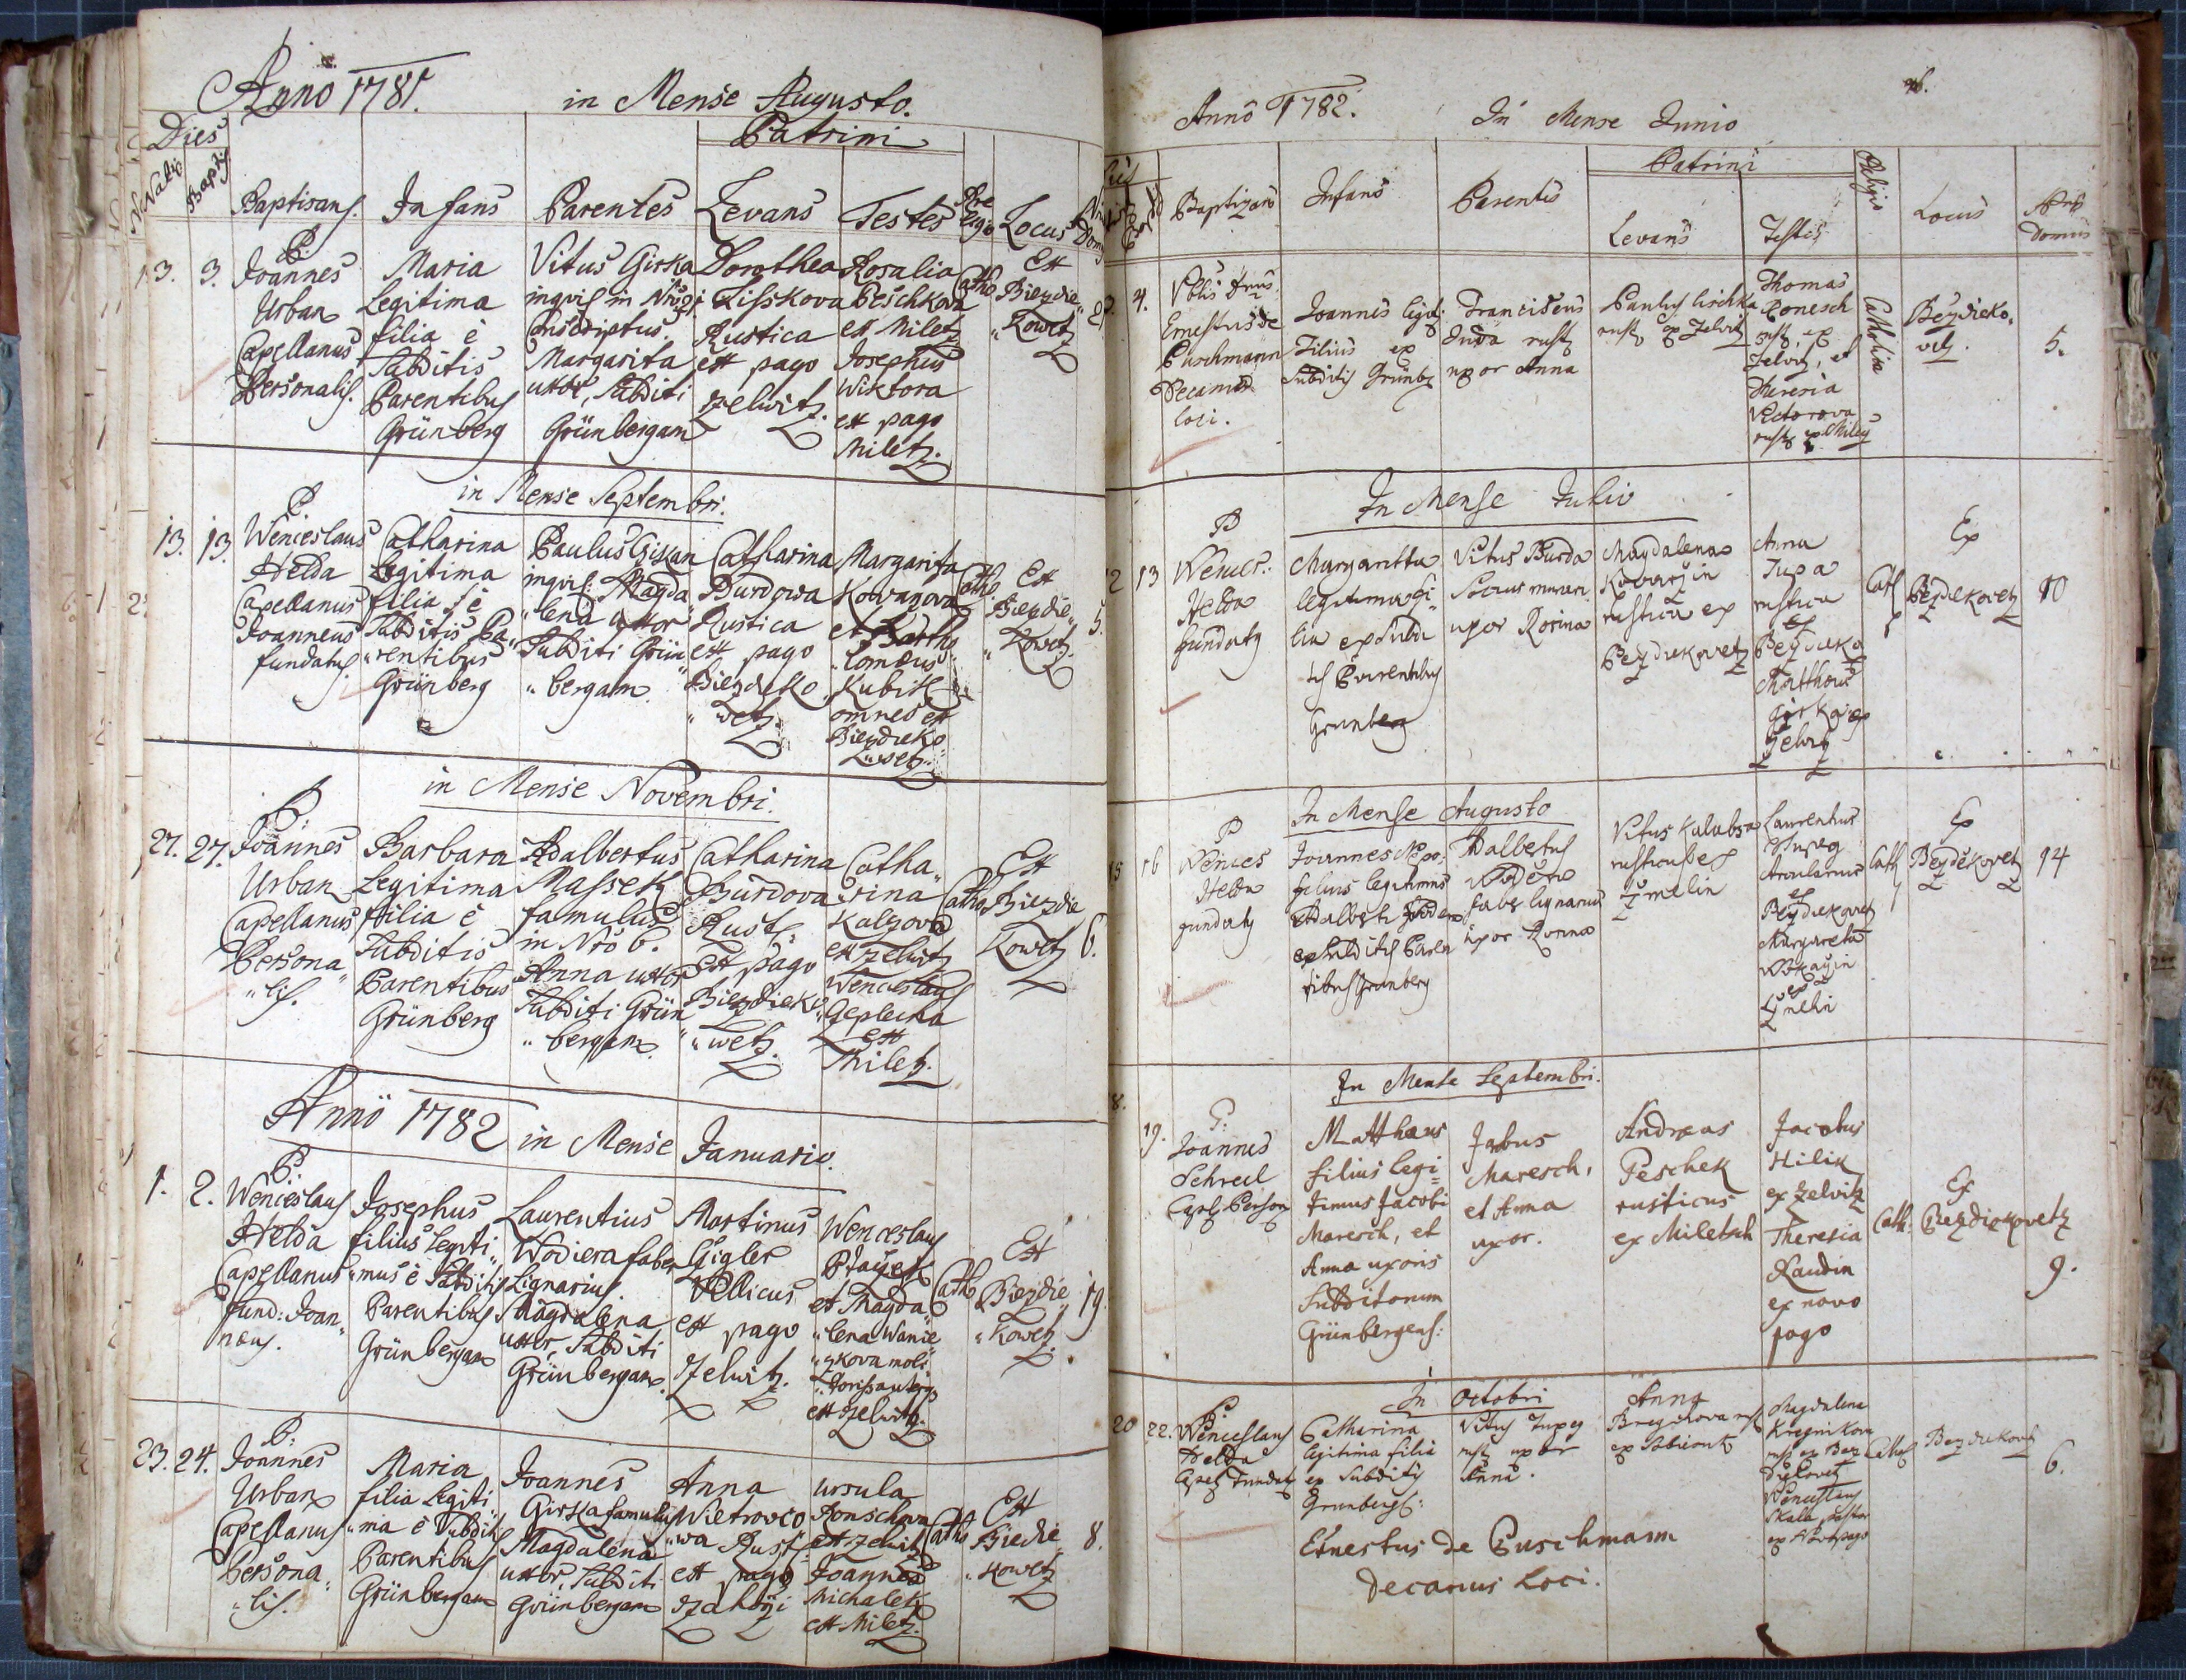 Anno 1781. in Mense Augusto.
Dies Patrini
Natis Baptis
Baptisans. Infans Parentes Levans Testes Locus
13. 3. P. Joannes Urban Capellanus Personalis.
Maria
Legitima
filia è
Subditis
Parentibus
Grünberg
Vitus Girka
inquil in Nro
Conscriptus.
Margarita
uxor, Subditi
Grünbergam
Dorothea
Lisskova
Rustica
ex pago
Zelwitz.
Rosalia
Peschkova
ex Miletz
Josephus
Wiktora
ex pago
Miletz.
Catho
Ex
Biezdie
"Kowetz
in Mense Septembri.
13. 13.
P.
Wenceslaus
Helda
Capellanus
Joanneus
fundatus.
Catharina
Legitima
filia è
Subditis Pa
"rentibus
Grünberg
Paulus Giskan
inquil: Magda
"lena uxor
Subditi Grün
"bergam.
Catharina
Burdowa
Rustica
ex pago
Biezdieko
"wetz.
Margarita
Kowanova
et Bartho
"lomæus
Kubik
omnes ex
Biezdieko
"wetz.
Catho.
Ex
Biezdie
"Kowetz.
5.
in Mense Novembri.
27. 27.
P.
Joannes
Urban
Capellanus
Persona
"lis.
Barbara
Legitima
filia è
Subditis
Parentibus
Grünberg
Adalbertus
Massek
famulus
in Nro 6.
Anna uxor
Subditi Grün
"bergam.
Catharina
Burdova
Rust.
ex pago
Biezdieko
"wetz.
Catha
"rina
Kalzova
ex Zelwitz
Wenceslaus
Geplecha
ex
Miletz.
Catho
Ex
Biezdie
Kowetz
6.
Anno 1782 in Mense Januario.
1. 2.
P.
Wenceslaus
Helda
Capellanus
fund: Joan
næus.
Josephus
filius Legiti
"mus è Subditis
Parentibus
Grünbergam
Laurentius
Wodiera faber
Lignarius.
Magdalena
uxor, Subditi
Grünbergam.
Martinus
Gigler
Villicus
ex pago
Zelwitz.
Wenceslaus
et Magda
"lena Wanie
"zkova moli
ex Zelwitz.
Cath
Ex
Biezdie
"Kowetz.
19.
23. 24.
P:
Joannes
Urban
Capellanus
Persona
"lis.
Maria
filia Legiti
"ma è Subditis
Parentibus
Grünbergam
Joannes
Girka famulus
Magdalena
uxor, Subditi
Grünbergam
Anna
Wietrovco
"wa Rust.
ex pago
Zahoři
Ursula
ex Zelwitz
Joannes
Michaletz
ex Miletz.
Catho
Ex
Biedie
"Kowetz
8.
Anno 1782. In Mense Junio
Patrini
Baptizans Infans Parentes Levans Testes Religio Locus Nrus Domus
4.
Ernestus de
Puschmann
Decanus
loci.
Joannes legit:
Filius ex
Subditis Grünb
Franciscus
Juda rust
uxor Anna
Paulus Lischka
rust ex Zelvitz
Thomas
Ronesch
rust, ex
Zelvitz, et
Theresia
Victorova
rust ex Miletz
Catholica
Bezdieko
vetz.
5.
In Mense Julio
12 13
P
Wences:
Helda
fundatus
Margaretta
legitima fi
lia ex Subdi
tis Parentibus
Grunberg
Vitus Burda
uxor Rosina
Magdalena
Kovarzin
rustica ex
Bezdiekovetz
Anna
Zupa
rustica
ex
Bezdieko
Matthæus
Girka ex
Zelvitz
Cath
Ex
Bezdiekovetz
10
In Mense Augusto
15 16
P
Wences
Helda
fundatus
Joannes Nepo:
filius legitimus
Adalberti
ex Subditis Paren
tibus Grunberg
Adalbertus
faber lignarius
uxor Anna
Vitus Kalabza
rusticus ex
Tzmelin
Laurentius
ex
Bezdiekovetz
Margareta
ex
Tzmelin
Cath
Ex
Bezdiekovetz
14
In Mense Septembri.
8. 19.
P:
Joannes
Schreil
Capel. Person
Matthæus
filius legi=
timus Jacobi
Maresch, et
Anna uxoris
Subditorum
Grünbergens:
Jabus
Maresch,
et Anna
uxor.
Andreas
Peschek
rusticus
ex Miletsch
Jacobus
Hilik
ex Zelvitz
Theresia
Kaudin
ex novo
pago
Cath:
Ex
Bezdiekovetz
9.
In Octobri
20 22.
P.
Wenceslaus
Helda
Capel. Fundatus
Catharina
legitima filia
ex Subditis
Grunbergs:
Vitus Zupa
rust uxor
Anna.
Anna
Magdalena
Wenceslaus
Skala
Cathol
Bezdiekovetz
6.
Ernestus de Puschmann
Decanus Loci.